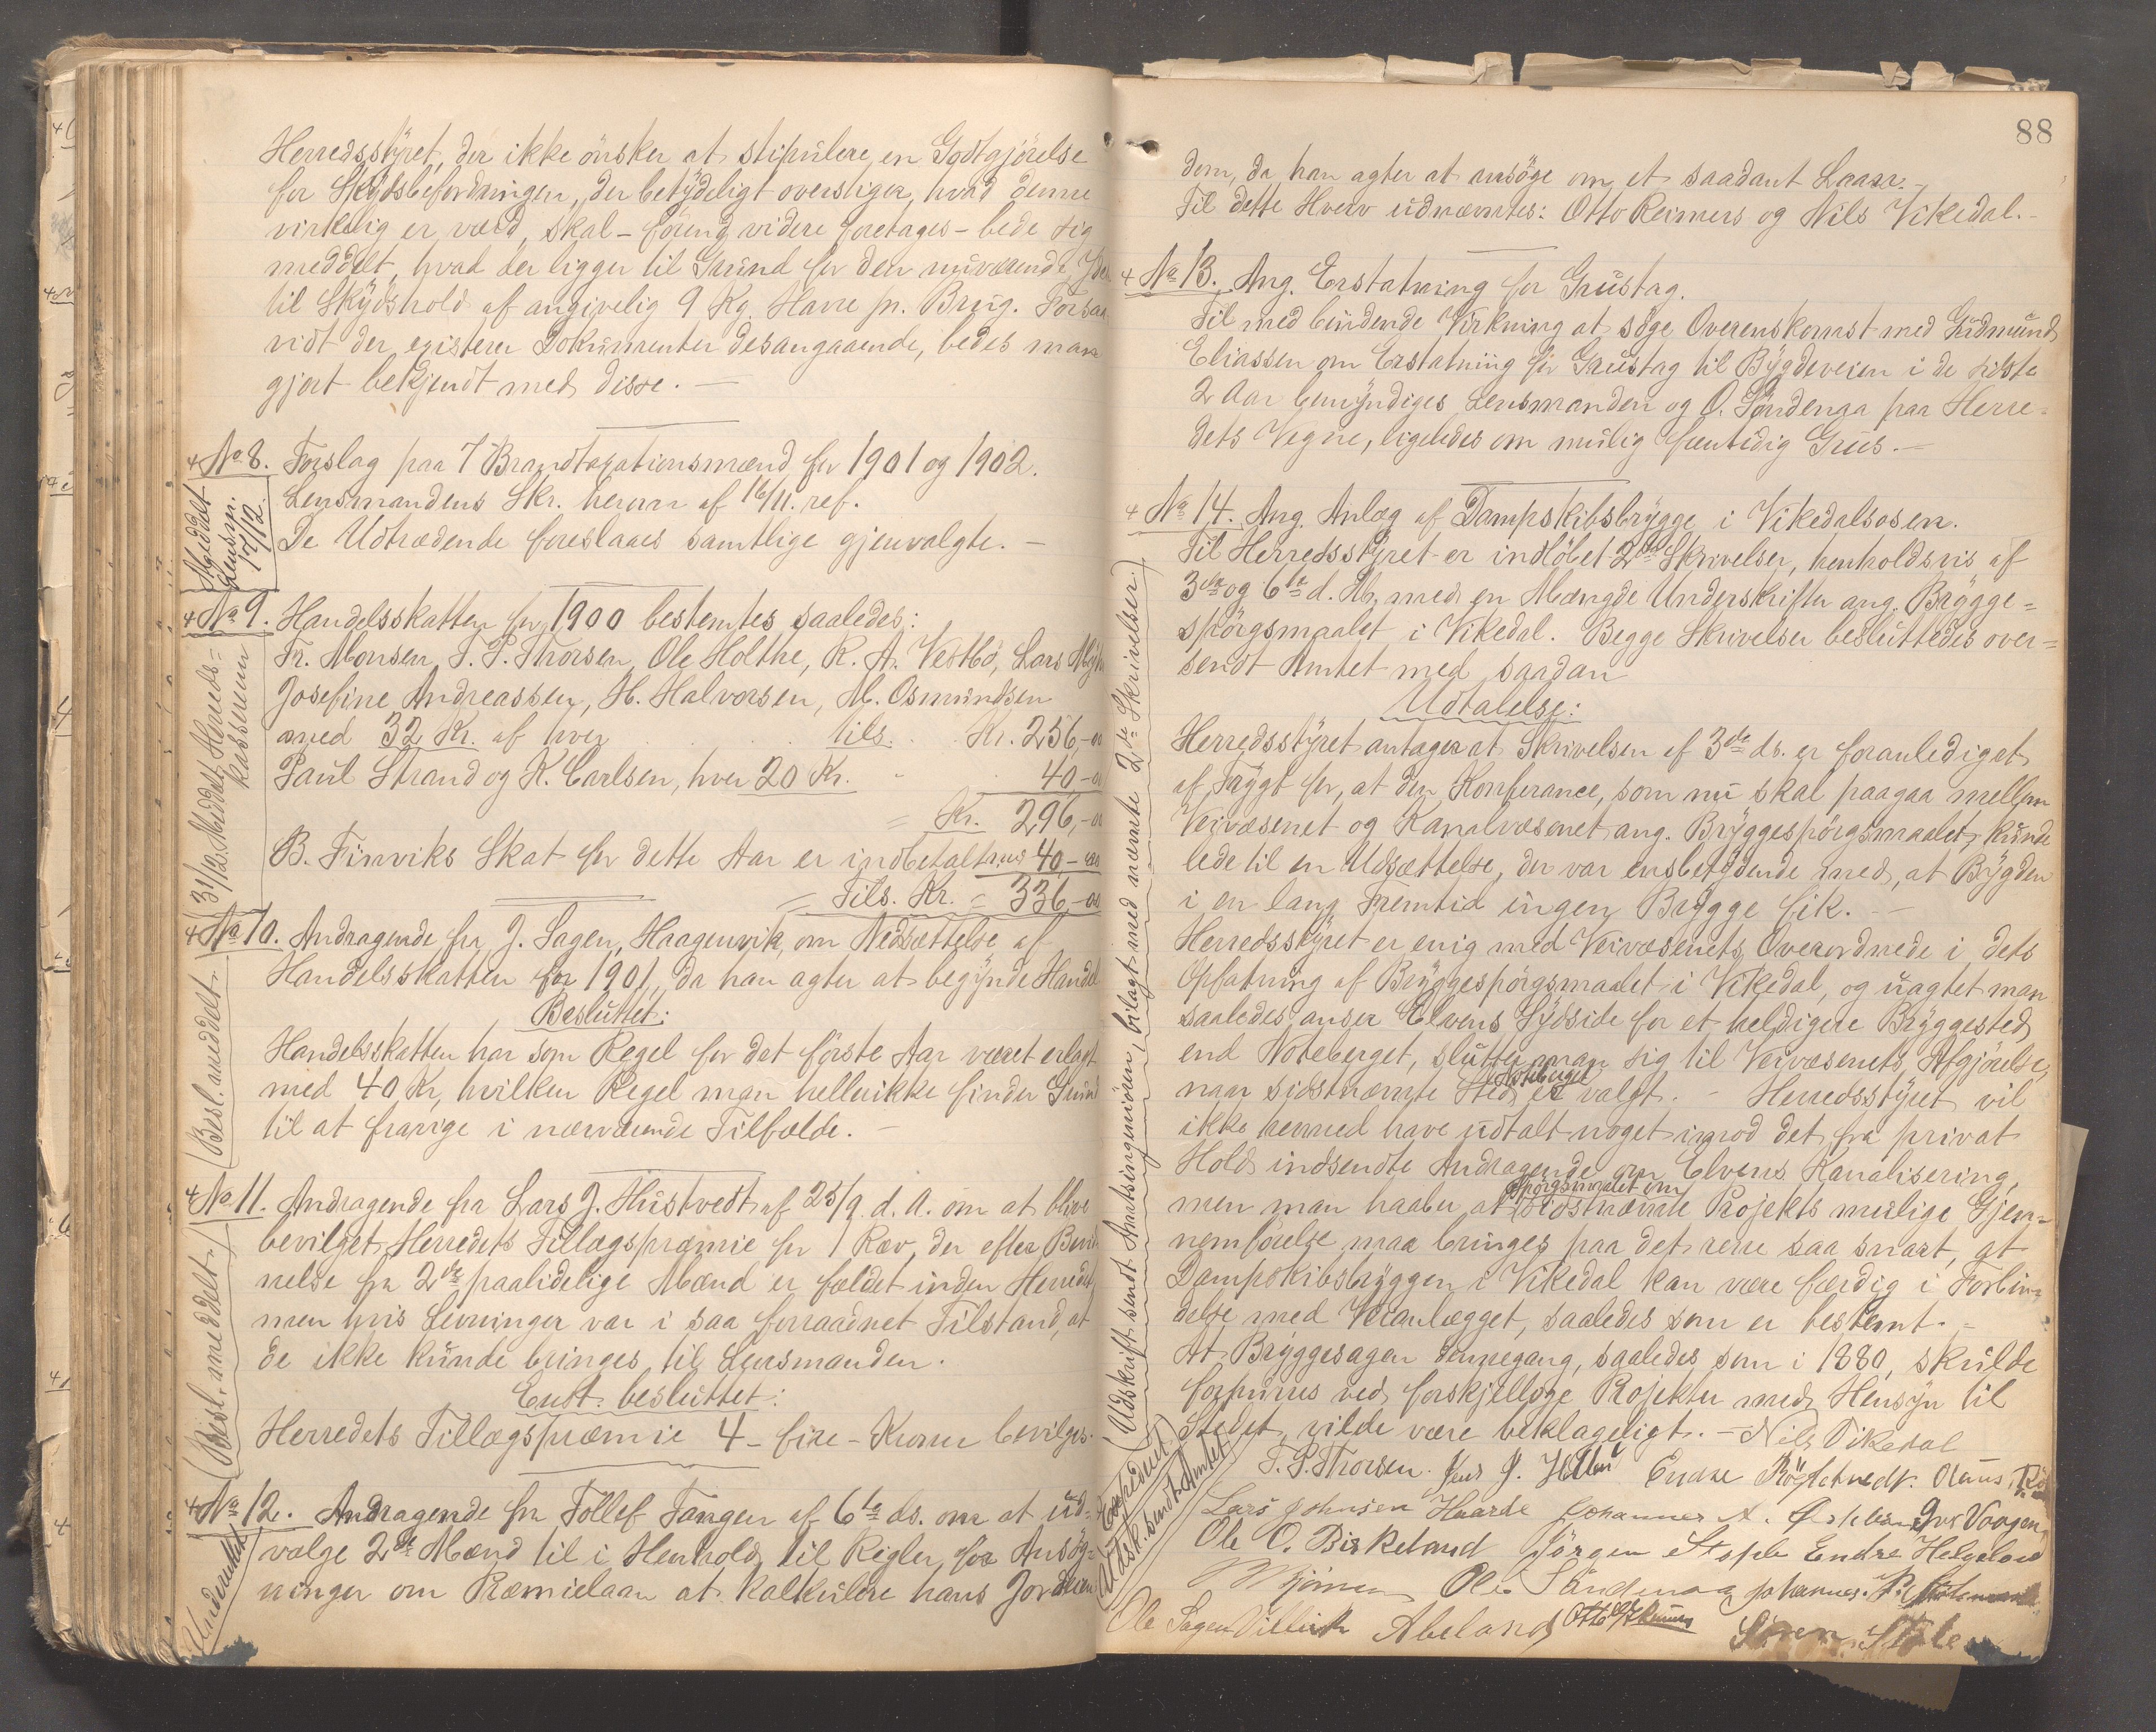 Herredsstyret, der ikke önsker at stipulere en Godtgjörelse
for Skydsbefordringen, der betydeligt overstiger, hvad denne
virkelig er værd, skal – förend videre foretages – bede sig
meddelt, hvad der ligger til Grund for den nuværende
til Skydshold af angivelig 9 Kg. Havre pr. Brug. Forsaa-
vidt der existerer Dokumenter desangaaende, bedes man
gjort bekjendt med disse. –
No 8. Forslag paa 7 Brandtaxationsmænd for 1901 og 1902.
Lensmandens Skr. herom af 16/11. ref.
De Udtrædende foreslaaes samtlige gjenvalgte. –
Meddelt
Lensm.
17/12.
No 9. Handelsskatten for 1900 bestemtes saaledes:
Fr. Monsen, T. P. Thorsen, Ole Holthe, R. A. Vestbö, Lars
Josefine Andreassen, H. Halvorsen, M. Osmundsen
med 32 Kr. af hver . . . tils. Kr. 256,-00
Paul Strand og K. Carlsen, hver 20 Kr. - 40-00
= Kr. 296,-00
B. Finviks Skat for dette Aar er indbetalt med 40,-00
= Tils. Kr. = 336,-00
31/12. Meddelt Herreds-
kassereren
No 10. Andragende fra J. Sagen, Haagenvik, om Nedsættelse af
Handelsskatten for 1901, da han agter at begynde Handel
Besluttet:
Handelsskatten har som Regel for det förste Aar været erlagt
med 40 Kr, hvilken Regel man hellerikke finder Grund
til at fravige i nærværende Tilfælde. –
(Besl. meddelt)
No 11. Andragende fra Lars J. Hustvedt af 25/9 d. A. om at blive
bevilget Herredets Tillægspræmie for 1 Ræv, der efter Bevid-
nelse fra 2de paalidelige Mænd er fældet inden Herredet,
men hvis Levninger var i saa forraadnet Tilstand, at
de ikke kunde bringes til Lensmanden.
Enst. besluttet:
Herredets Tillægspræmie 4 – fire – Kroner bevilges.
(Besl. meddelt)
No 12. Andragende fra Tollef Tangen af 6te ds. om at ud-
vælge 2de Mænd til i Henhold til Regler for Ansög-
ninger om Præmielaan at kalkulere hans Jordeien
Underrettet
88
dom, da han agter at ansöge om et saadant Laan. –
Til dette Hverv udnævntes: Otto Reimers og Nils Vikedal. –
No 13. Ang. Erstatning for Grustag.
Til med bindende Virkning at söge Overenskomst med Gudmund
Eliassen om Erstatning for Grustag til Bygdeveien i de sidste
2 Aar bemyndiges Lensmanden og O. Söndenaa paa Herre-
dets Vegne, ligeledes om mulig fremtidig Grus. –
No 14. Ang. Anlæg af Dampskibsbrygge i Vikedalsosen.
Til Herredsstyret er indlöbet 2de Skrivelser, henholdsvis af
3die og 6te d. M. med en Mængde Underskrifter ang. Brygge-
spörgsmaalet i Vikedal. Begge Skrivelser besluttedes over-
sendt Amtet med saadan
Udtalelse:
Herredsstyret antager at Skrivelsen af 3die ds. er foranlediget
af Frygt for, at den Konferance, som nu skal paagaa mellem
Veivæsenet og Kanalvæsenet ang. Bryggespörgsmaalet, kunde
lede til en Udsættelse, der var ensbetydende med, at Bygden
i en lang Fremtid ingen Brygge fik. –
Herredsstyret er enig med Veivæsenets Overordnede i dets
Opfatning af Bryggespörgsmaalet i Vikedal, og uagtet man
saaledes anser Elvens Sydside for et heldigere Bryggested
end Noteberget, slutter man sig til Veivæsenets Afgjörelse,
naar sidstnævnte Sted Noteberget er valgt. – Herredsstyret vil
ikke hermed have udtalt noget imod det fra privat
Hold indsendte Andragende om Elvens Kanalisering,
men man haaber at Spörgsmaalet om sidstnævnte Projekts mulige Gjen-
nemförelse maa bringes paa det rene saa snart, at
Dampskibsbryggen i Vikedal kan være færdig i Forbin-
delse med Veianlægget, saaledes som er bestemt. –
At Bryggesagen dennegang, saaledes som i 1880, skulde
forpurres ved forskjellige Projekter med Hensyn til
Stedet, vilde være beklageligt. – Nils Vikedal
T. P. Thorsen.
Lars Johnsen Haarde Johannes A.
Ole O. Birkeland Jörgen Stople Endre Helgeland
Ole Söndenaa Johannes
Ole Sagen Abeland Otto Reimers Sören Stole
(Udskrift sendt Amtsingeniören, bilagt med nævnte 2de Skrivelser.)
Expederet
Udsk. sendt Amtet